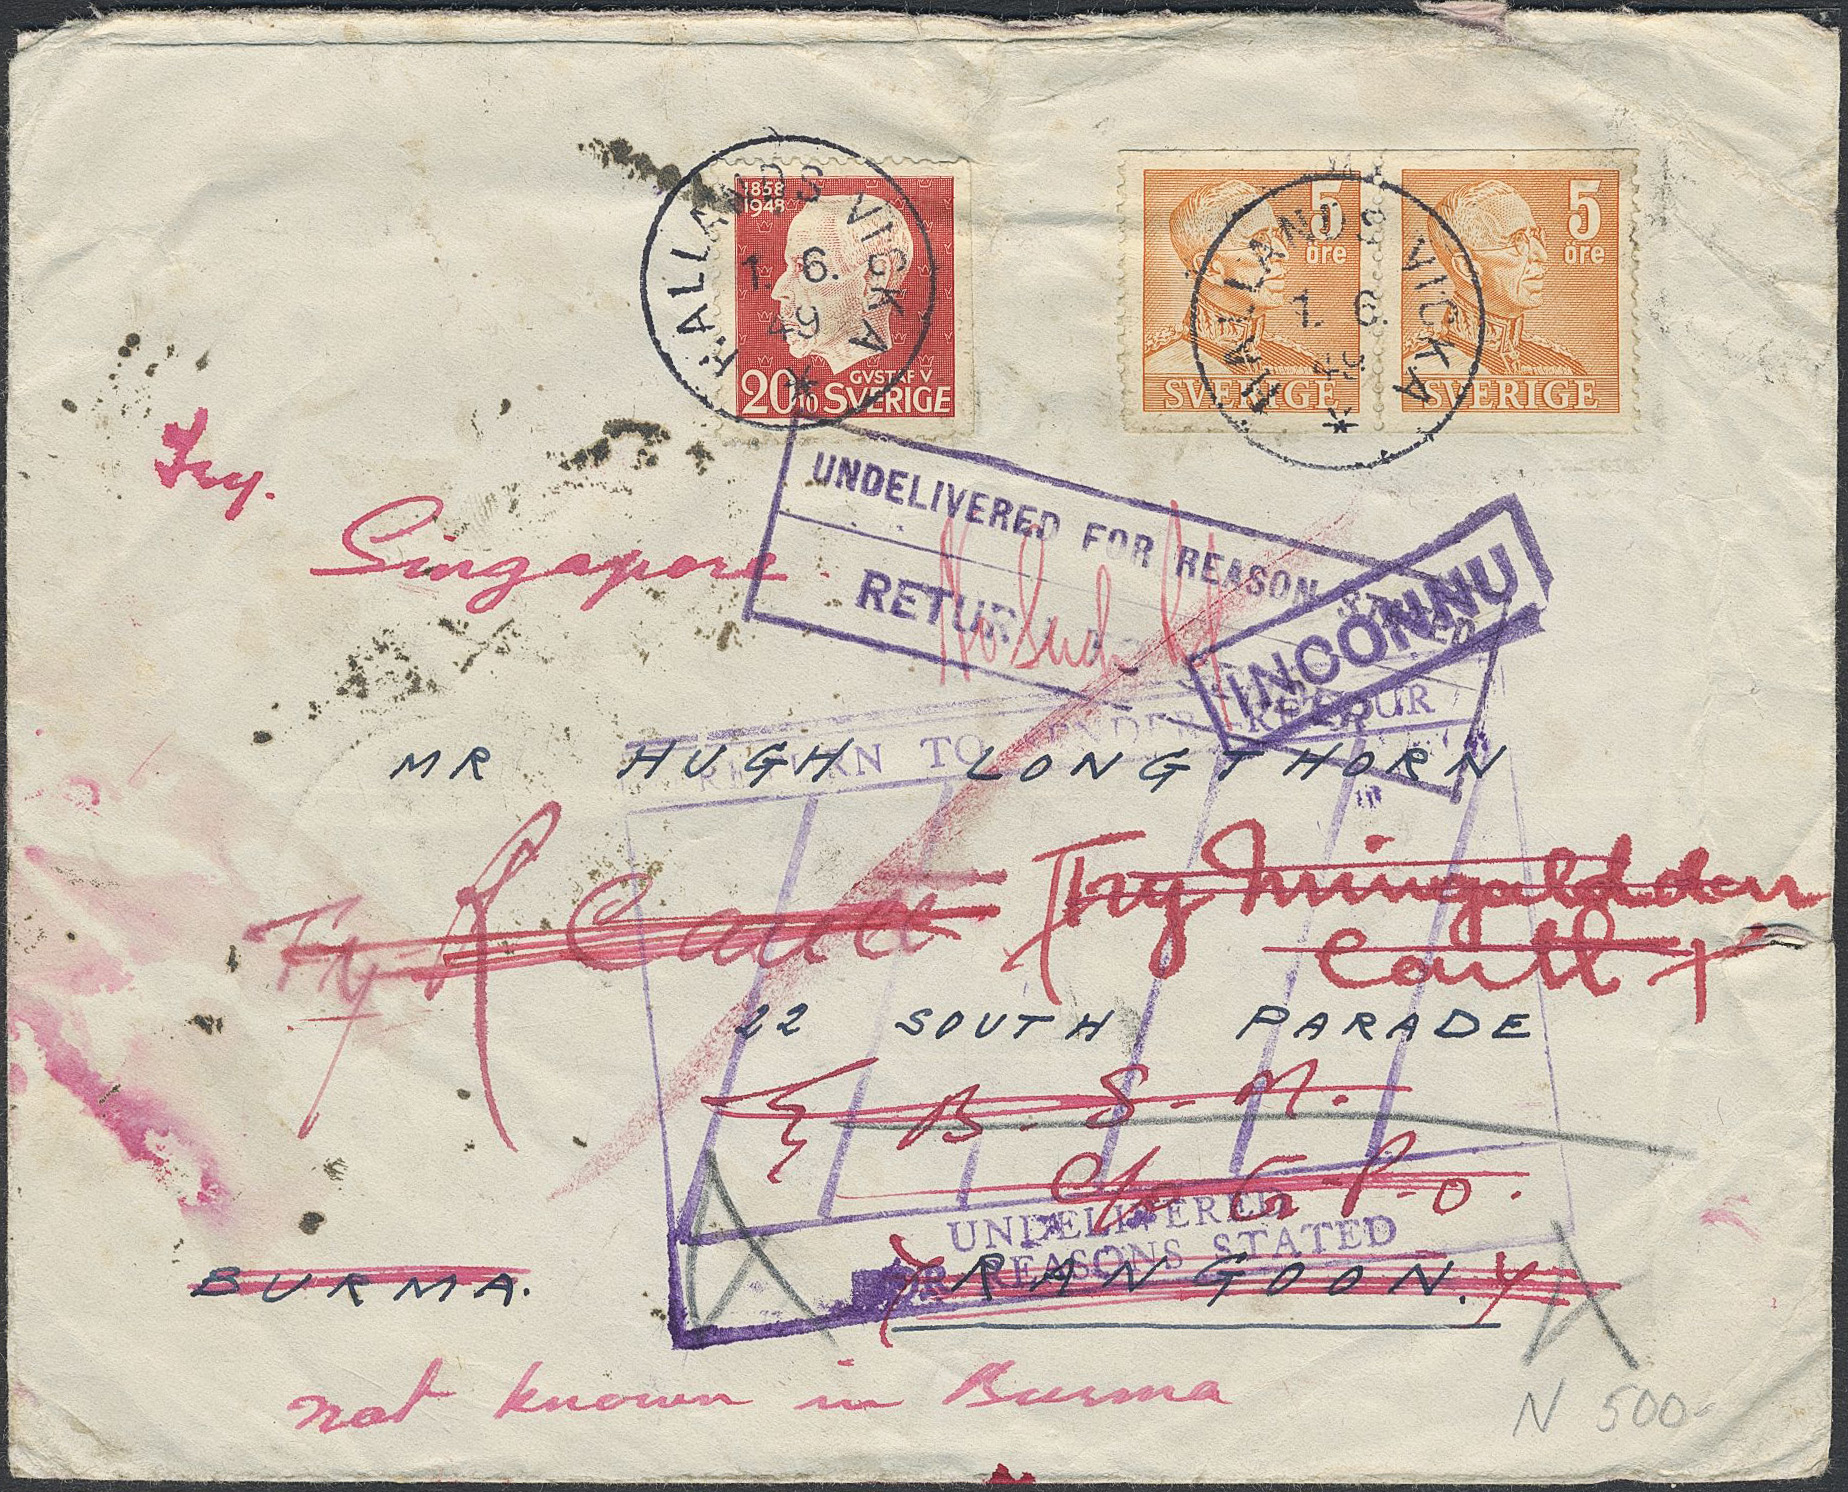 1858
1948
20+10 SVERIGE
GVSTAF V
HALLANDS VISKA
1. 6.
49
5
öre
SVERIGE
5
öre
SVERIGE
HALLANDS VISKA
1. 6.
49
Try.
Singapore.
UNDELIVERED FOR REASON STATED
RETURN TO
No Such
INCONNU
RETURN TO SENDER RETOUR
MR HUGH LONGTHORN
Try R
Try Mingaladon
Cantt
22 SOUTH PARADE
B. S. N.
c/o G. P. O.
UNDELIVERED
FOR REASONS STATED
BURMA.
RANGOON.
not known in Burma
N 500-